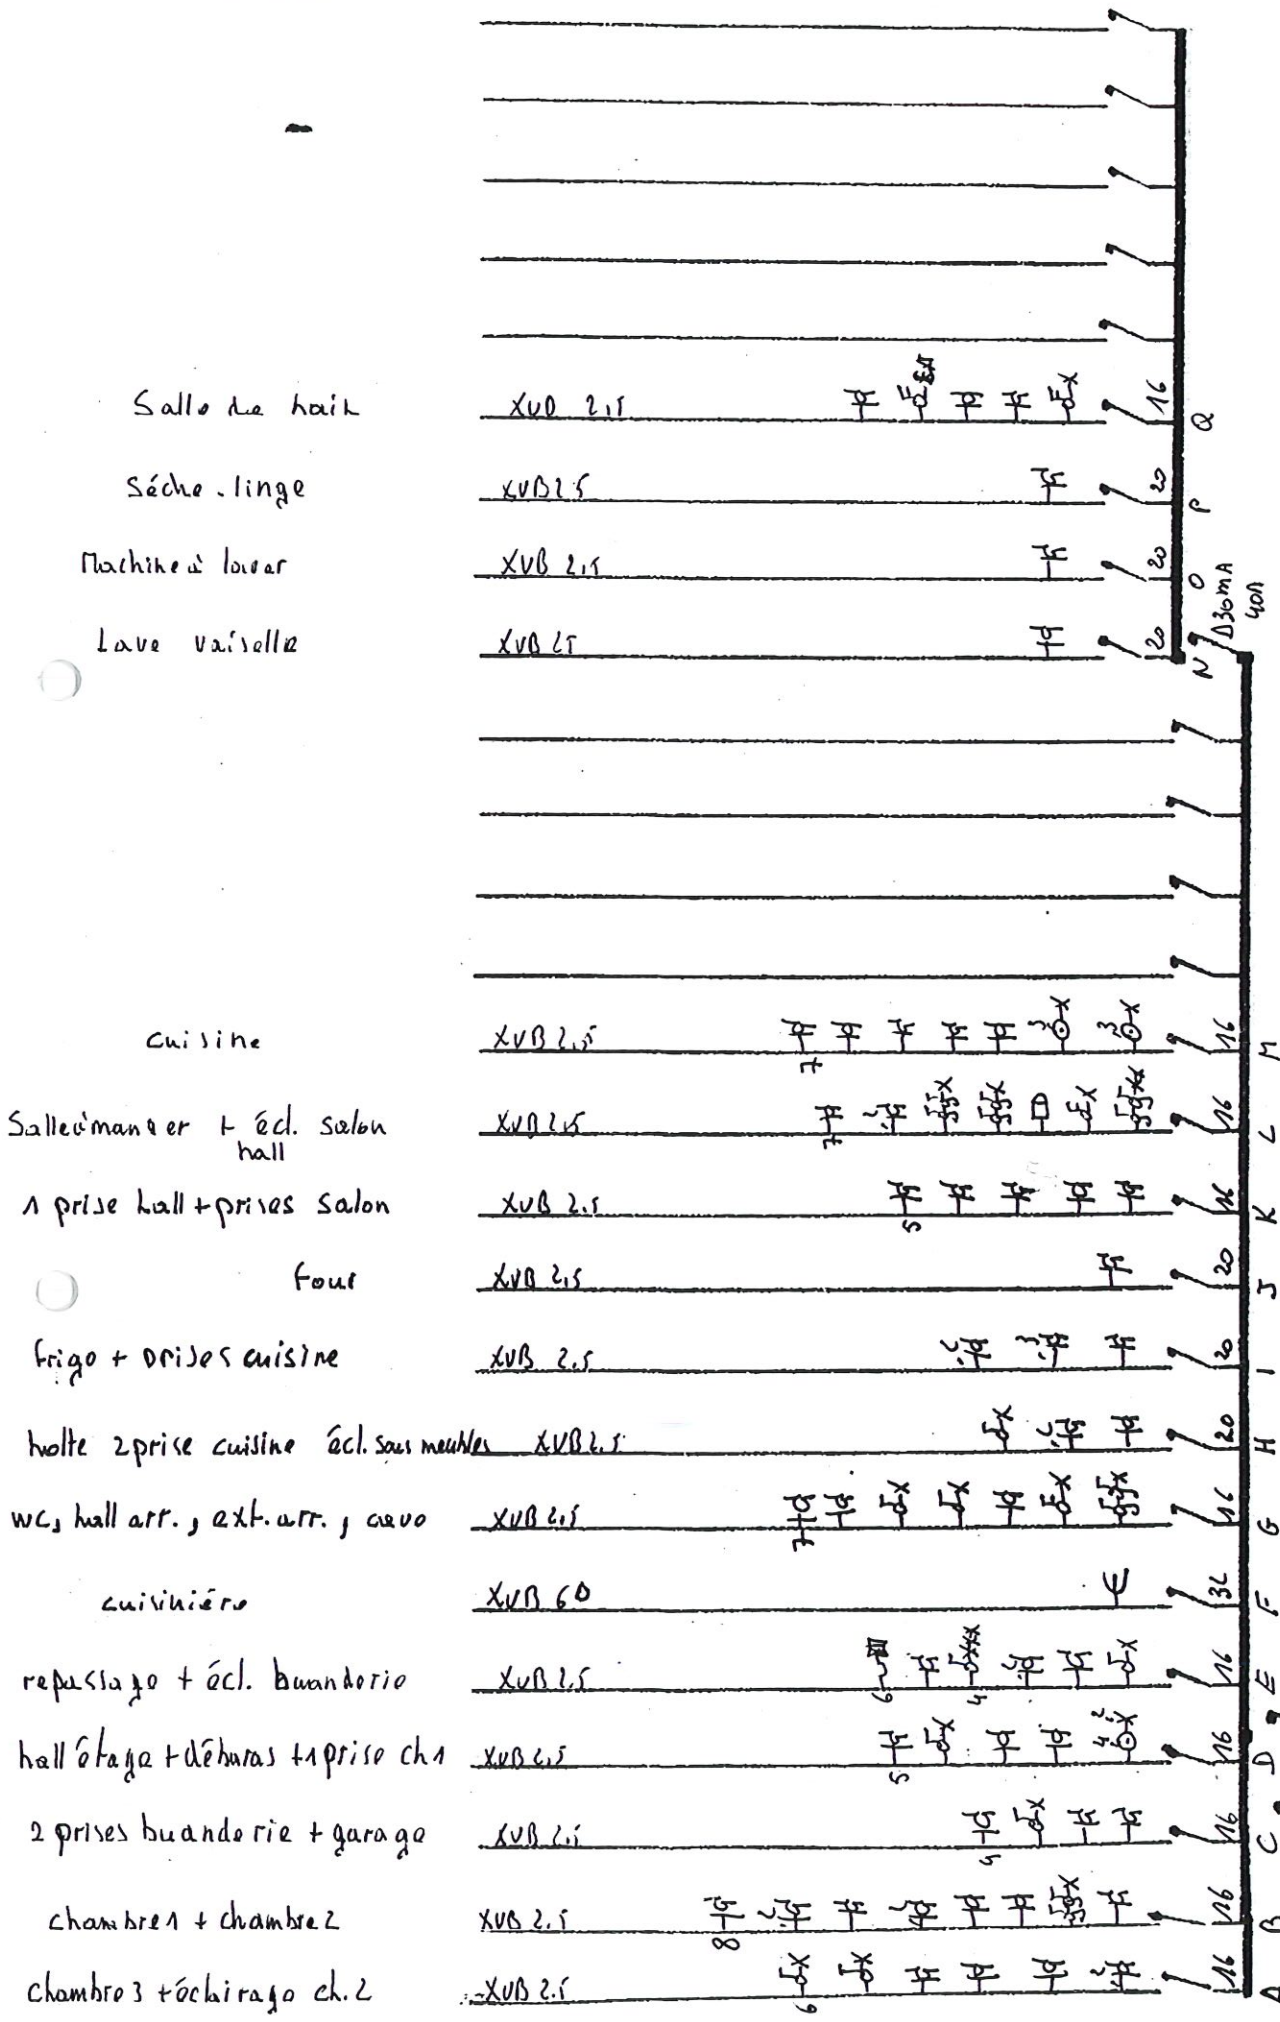 Salle de bain XVB 2,5 16 Q
Séche-linge XVB 2.5 20 P
Machine à laver XVB 2,5 20 O
Lave vaiselle XVB 2.5 20 N
Δ30mA
40A
cuisine XVB 2,5 7 3 3 16 M
Salle à manger + écl. salon XVB 2,5 7 2 16 L
hall
1 prise hall + prises salon XVB 2.5 5 16 K
four XVB 2,5 20 J
frigo + prises cuisine XVB 2.5 2 3 20 I
hotte 2 prise cuisine écl. sous meubles XVB 2.5 2 20 H
wc, hall arr., ext. arr., cave XVB 2,5 7 16 G
cuisiniére XVB 6 32 F
repassage + écl. buanderie XVB 2.5 6 4 16 E
hall étage + débaras + 1 prise ch1 XVB 2,5 5 4 2 16 D
2 prises buanderie + garage XVB 2.5 4 16 C
chambre 1 + chambre 2 XVB 2.5 8 2 16 B
chambre 3 + éclairage ch. 2 XVB 2.5 6 2 16 A